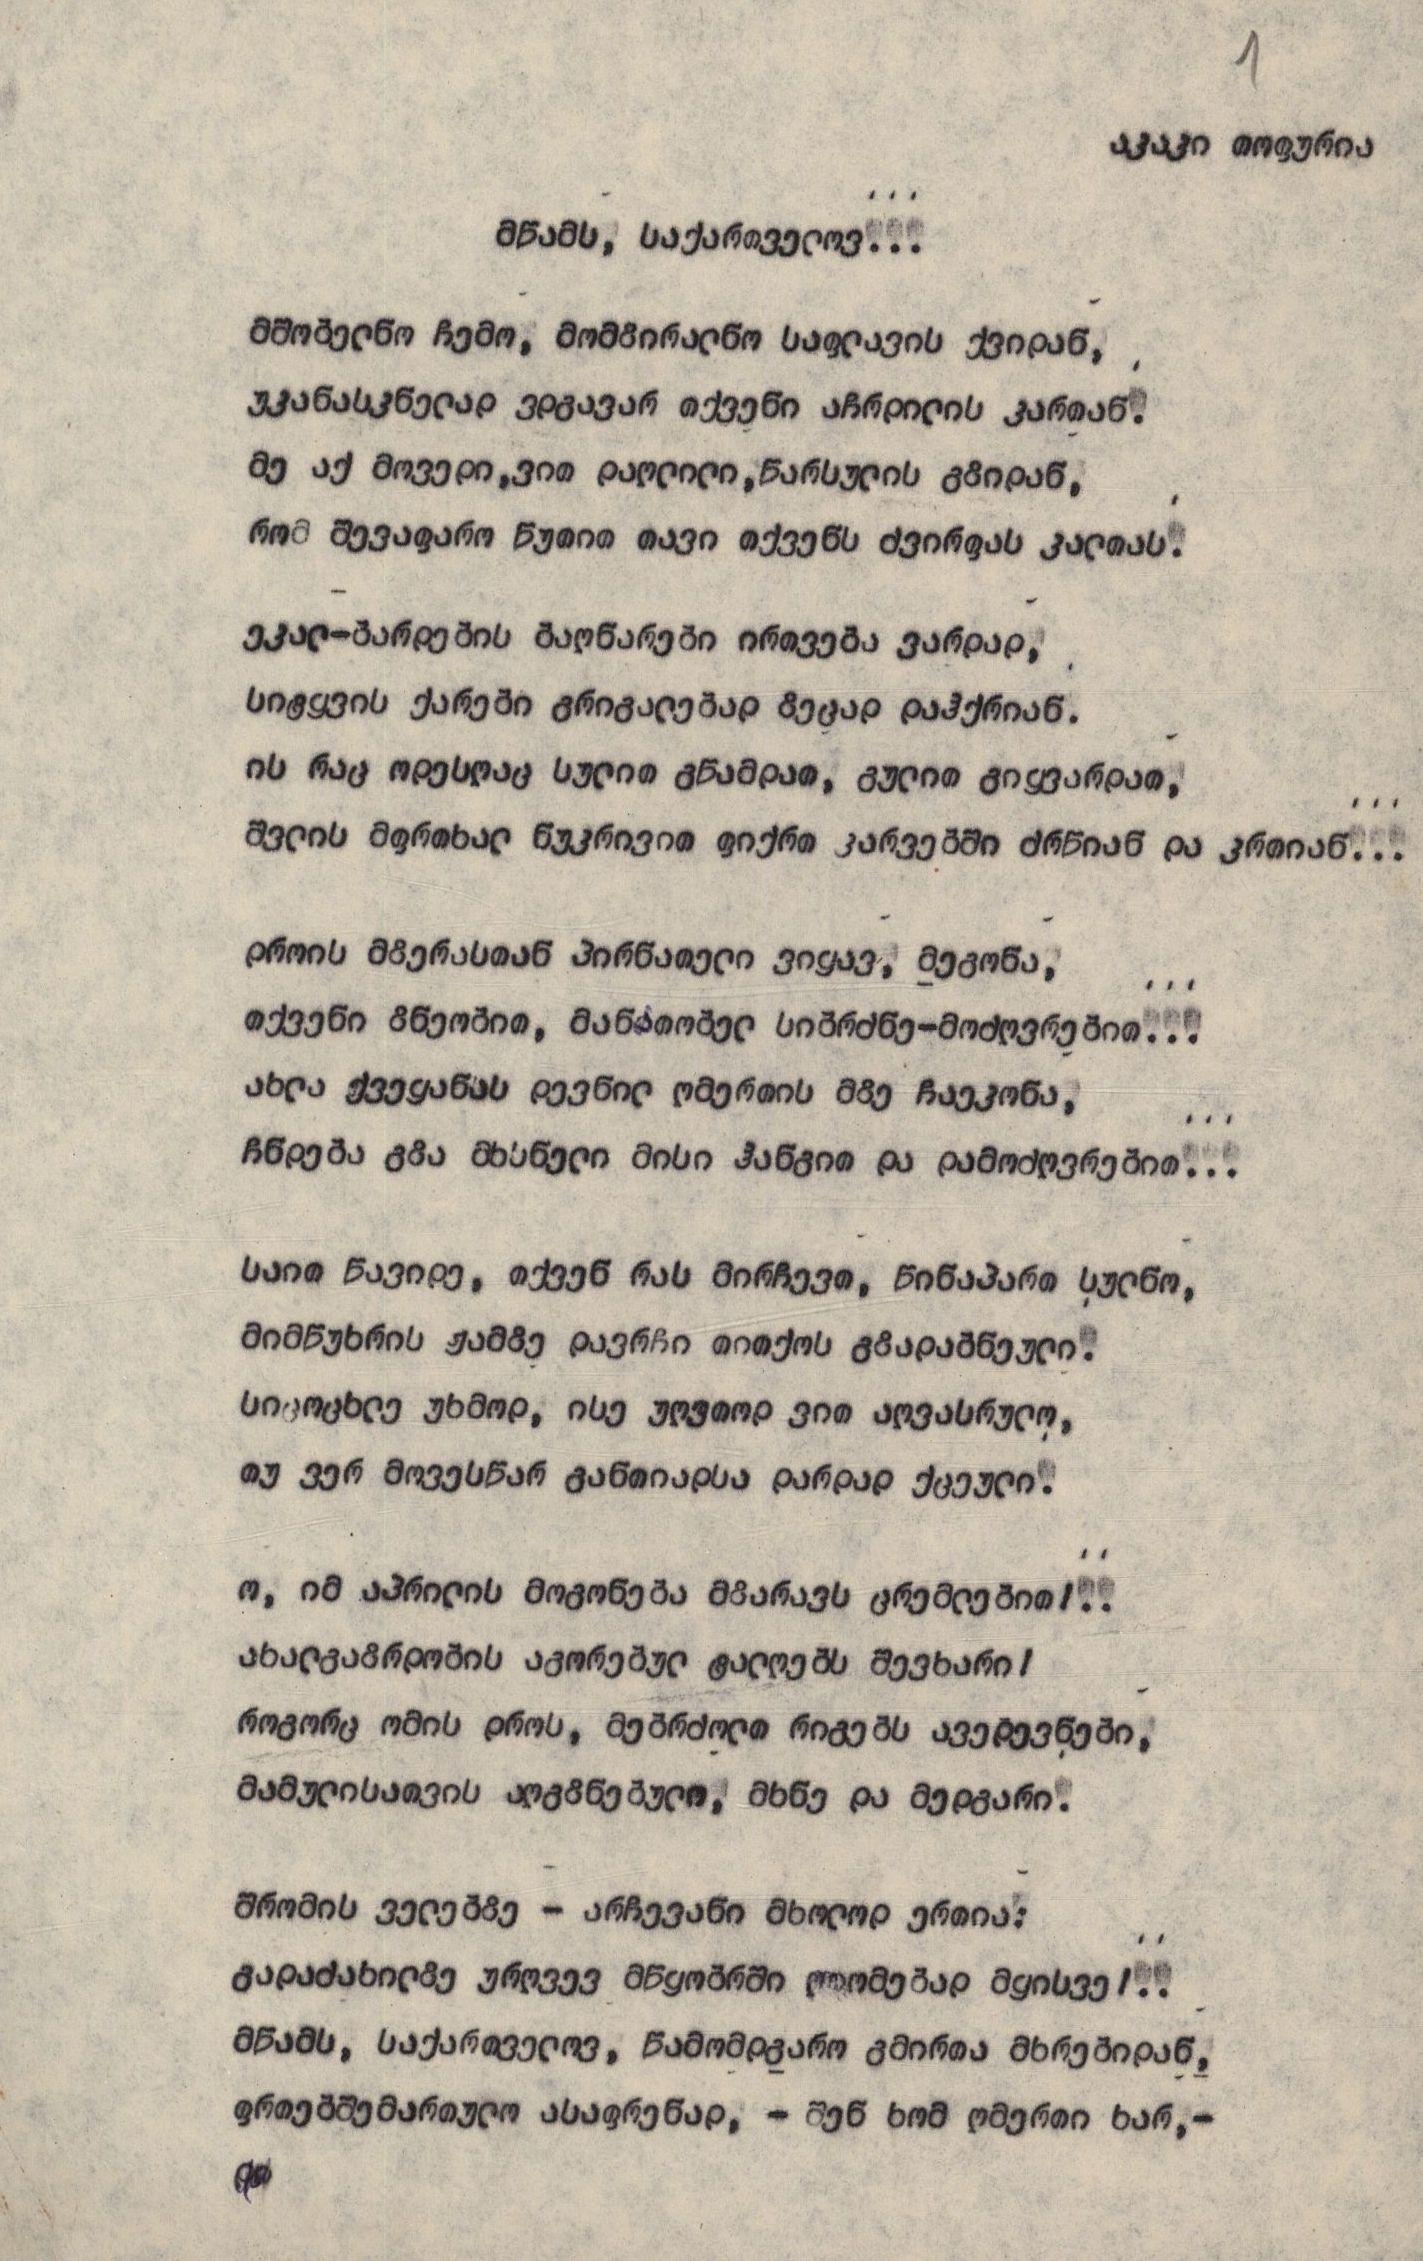 1
აკაკი თოფურია
მწამს, საქართველოვ...
მშობელნო ჩემო, მომზირალნო საფლავის ქვიდან,
უკანასკნელად ვდგავარ თქვენი აჩრდილის კართან.
მე აქ მოვედი,ვით დაღლილი,წარსულის გზიდან,
რომ შევაფარო წუთით თავი თქვენს ძვირფას კალთას.
ეკალ-ბარდების ბაღნარები ირთვება ვარდად,
სიტყვის ქარები გრიგალებად ზეცად დაჰქრიან.
ის რაც ოდესღაც სულით გწამდათ, გულით გიყვარდათ,
შვლის მფრთხალ ნუკრივით ფიქრთ კარვებში ძრწიან და კრთიან...
დროის მზერასთან პირნათელი ვიყავ, მეგონა,
თქვენი ზნეობით, მანათობელ სიბრძნე-მოძღვრებით...
ახლა ქვეყანას დევნილ ღმერთის მზე ჩაეკონა,
ჩნდება გზა მხსნელი მისი ჰანგით და დამოძღვრებით...
საით წავიდე, თქვენ რას მირჩევთ, წინაპართ სულნო,
მიმწუხრის ჟამზე დავრჩი თითქოს გზადაბნეული.
სიცოცხლე უხმოდ, ისე უღვთოდ ვით აღვასრულო,
თუ ვერ მოვესწარ განთიადსა დარდად ქცეული.
ო, იმ აპრილის მოგონება მზარავს ცრემლებით!..
ახალგაზრდობის აგორებულ ტალღებს შევხარი!
როგორც ომის დროს, მებრძოლთ რიგებს ავედევნები,
მამულისათვის აღგზნებულო, მხნე და მედგარი.
შრომის ველებზე - არჩევანი მხოლოდ ერთია:
გადაძახილზე ურღვევ მწყობრში ლომებად მყისვე!..
მწამს, საქართველოვ, წამომდგარო გმირთა მხრებიდან,
ფრთებშემართულო ასაფრენად, - შენ ხომ ღმერთი ხარ,-